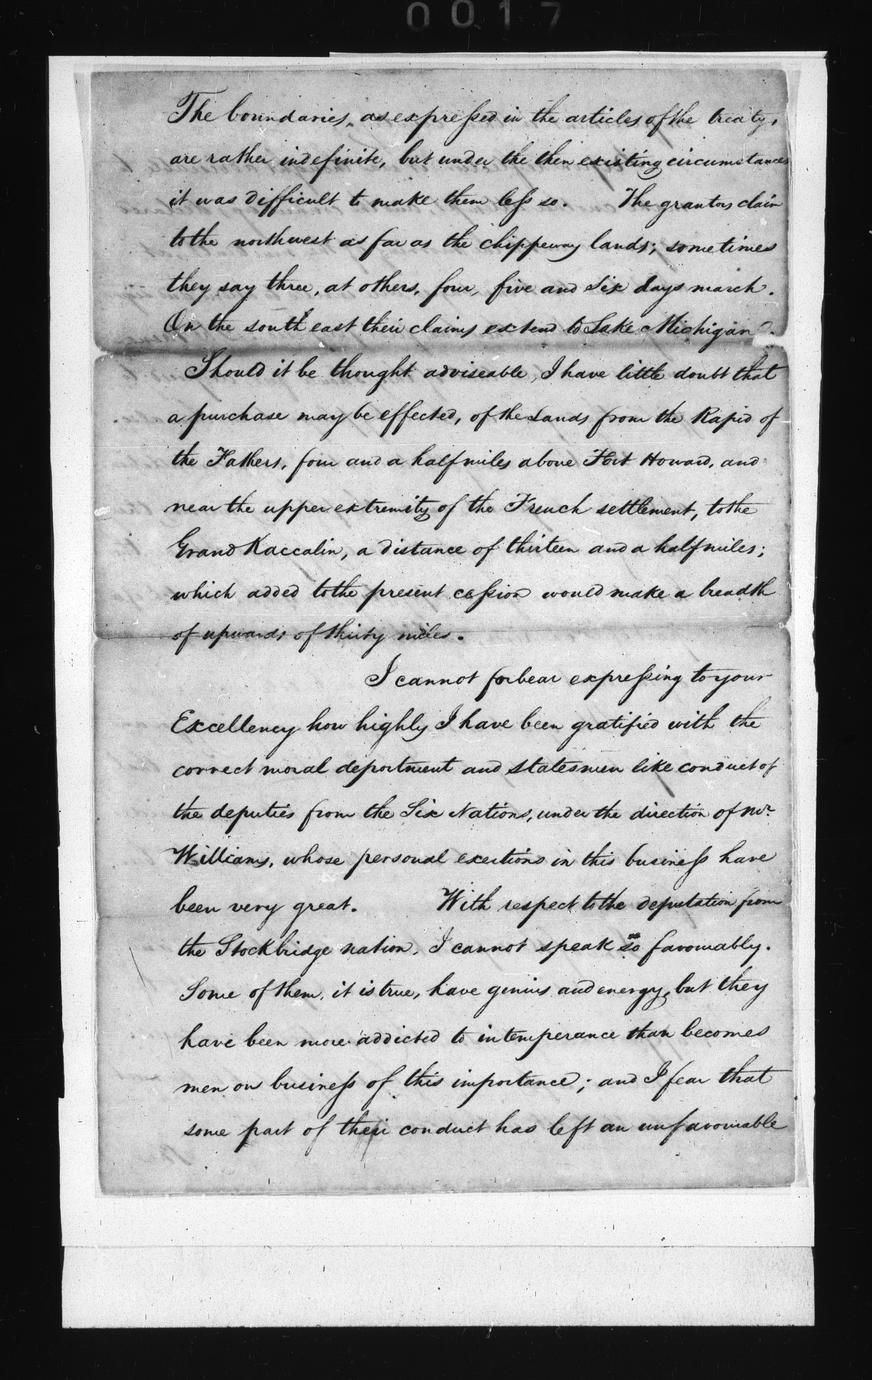 0017
The boundaries, as expressed in the articles of the treaty,
are rather indefinite, but under the then existing circumstances
it was difficult to make them less so. The grantors claim
to the northwest as far as the chippeway lands; sometimes
they say three, at others, four, five and Six days march.
On the south east their claims extend to Lake Michigan.
Should it be thought adviseable, I have little doubt that
a purchase may be effected, of the Lands from the Rapid of
the Fathers, four and a half miles above Fort Howard, and
near the upper extremity of the French settlement, to the
Grand Kaccalin, a distance of thirteen and a half miles;
which added to the present cession would make a breadth
of upwards of thirty miles.
I cannot forbear expressing to your
Excellency how highly I have been gratified with the
correct moral deportment and statesmen like conduct of
the deputies from the Six Nations, under the direction of Mr.
Williams, whose personal exertions in this business have
been very great. With respect to the deputation from
the Stockbridge nation, I cannot speak so favourably.
Some of them, it is true, have genius and energy, but they
have been more addicted to intemperance than becomes
men on business of this importance; and I fear that
some part of their conduct has left an unfavourable